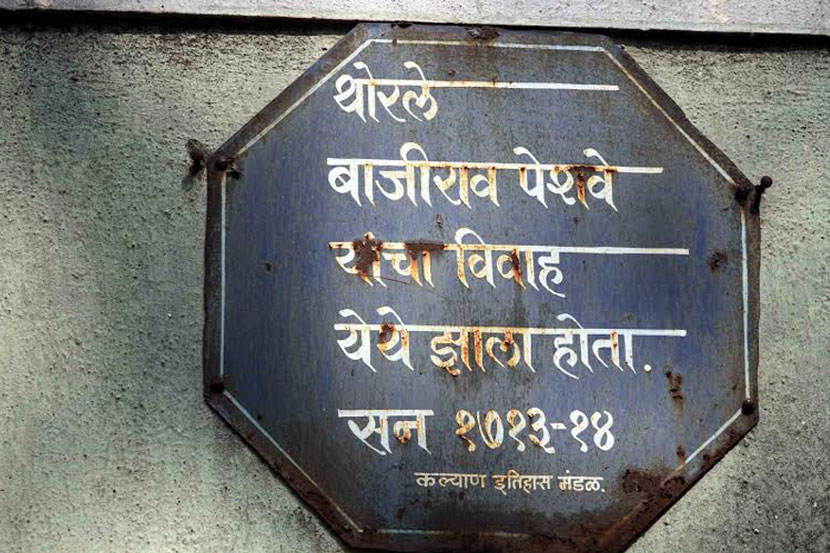 थोरले
बाजीराव पेशवे
यांचा विवाह
येथे झाला होता.
सन १७१३-१४
कल्याण इतिहास मंडळ.